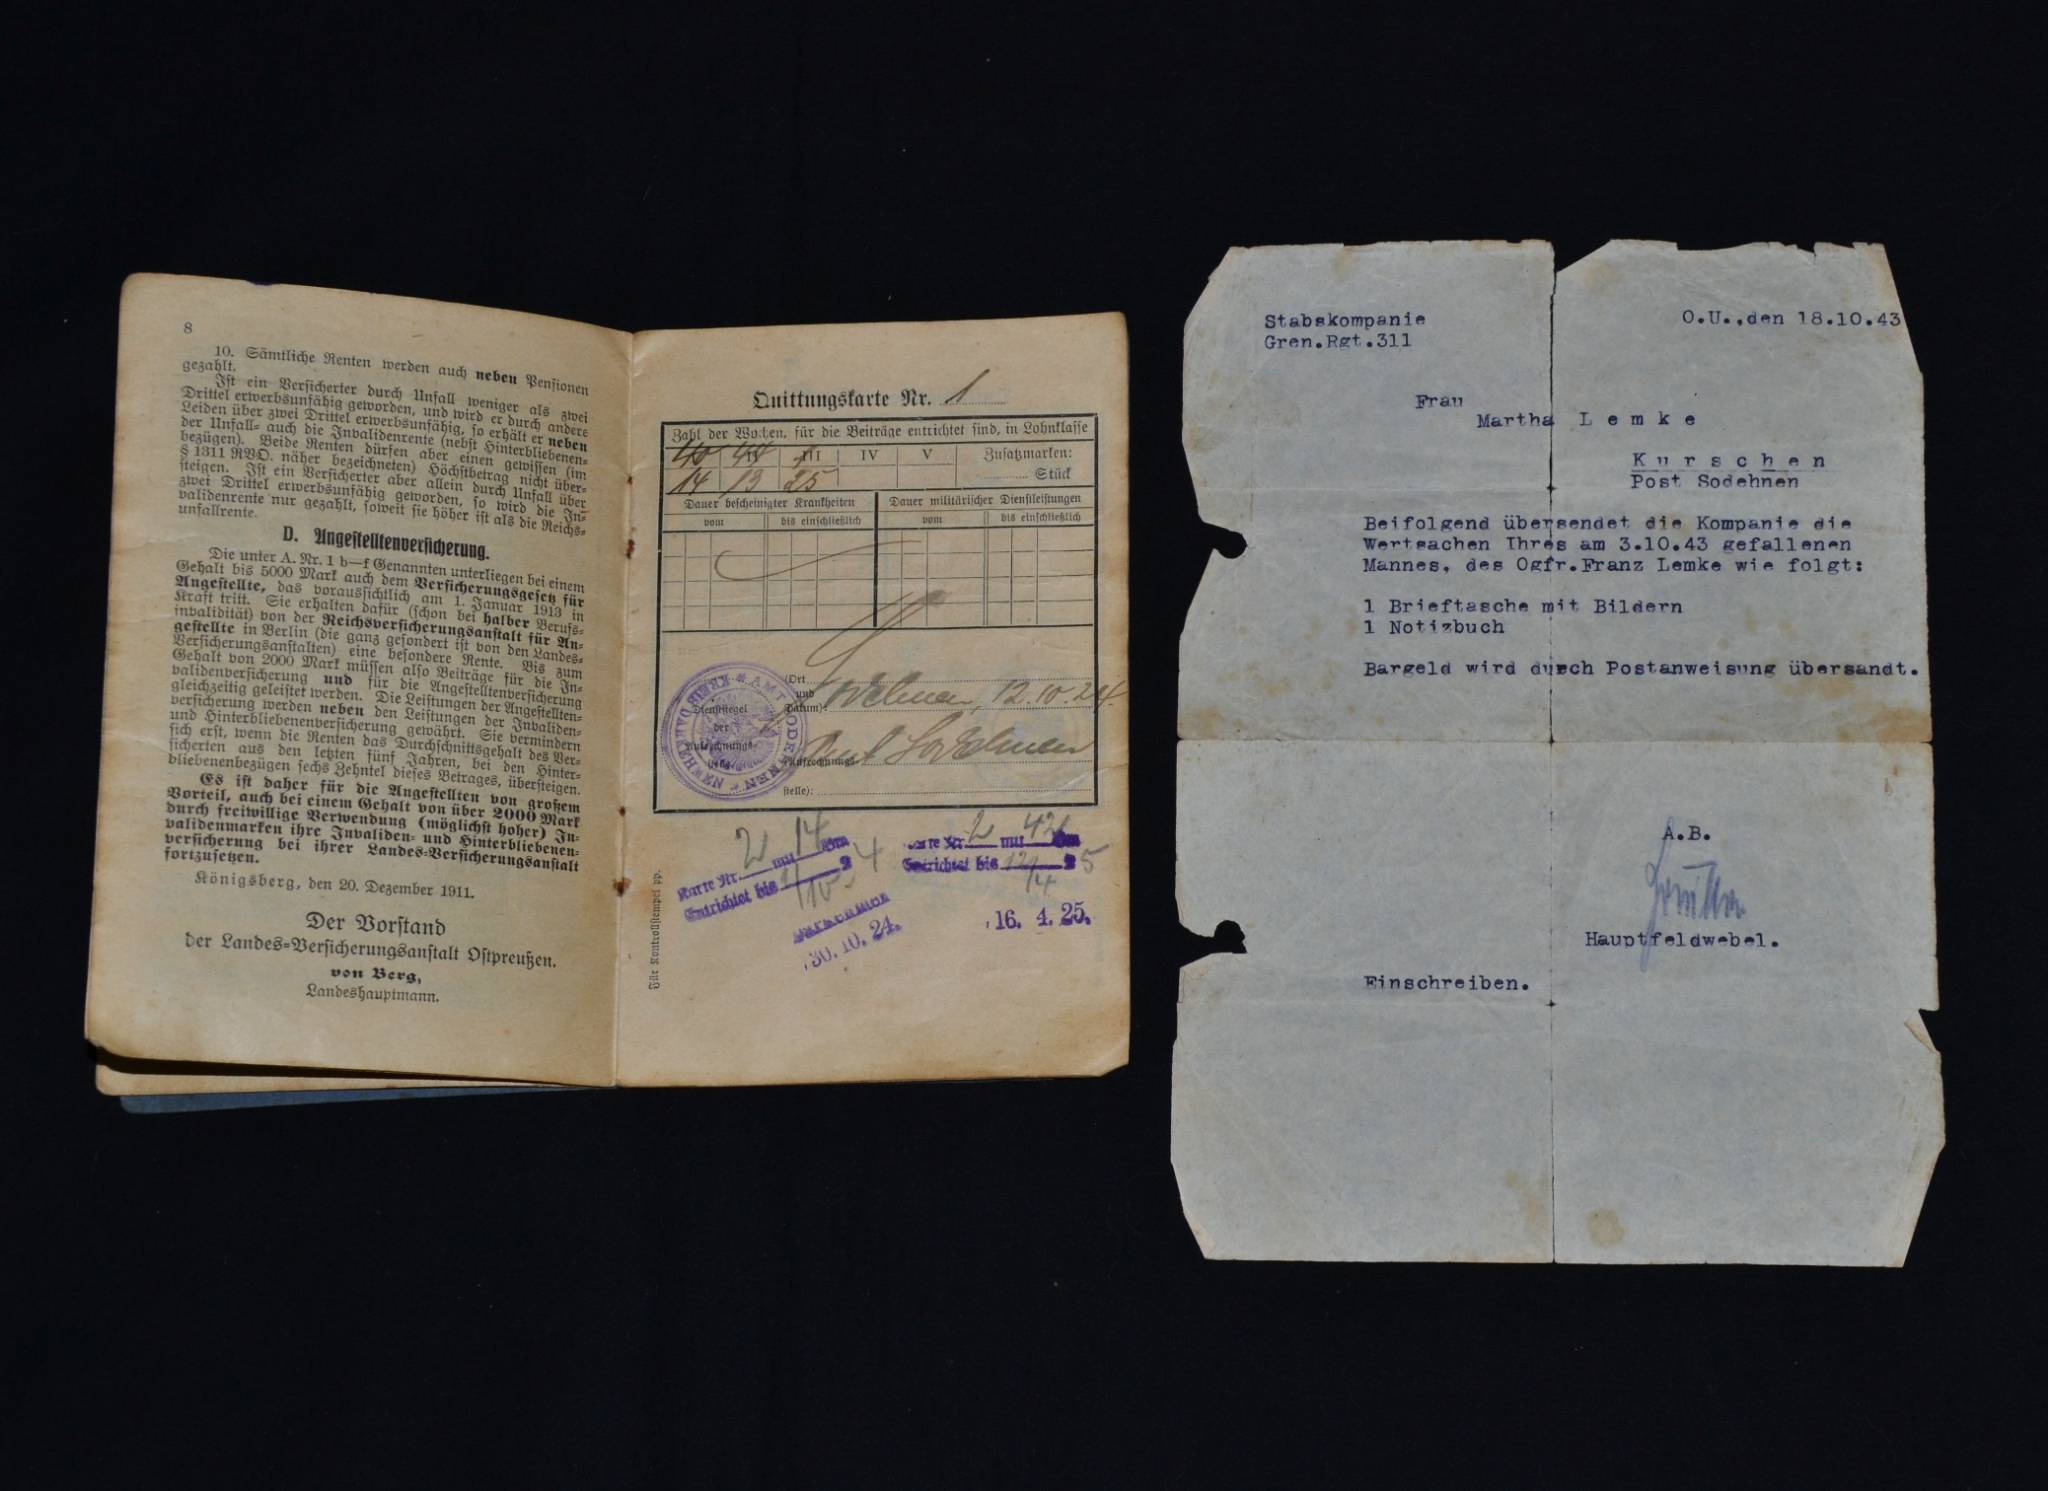 8
10. Sämtliche Renten werden auch neben Pensionen
gezahlt.
Ist ein Versicherter durch Unfall weniger als zwei
Drittel erwerbsunfähig geworden, und wird er durch andere
Leiden über zwei Drittel erwerbsunfähig, so erhält er neben
der Unfall- auch die Invalidenrente (nebst Hinterbliebenen-
bezügen). Beide Renten dürfen aber einen gewissen (im
§ 1311 RVO. näher bezeichneten) Höchstbetrag nicht über-
steigen. Ist ein Versicherter aber allein durch Unfall über
zwei Drittel erwerbsunfähig geworden, so wird die In-
validenrente nur gezahlt, soweit sie höher ist als die Reichs-
unfallrente.
D. Angestelltenversicherung.
Die unter A. Nr. 1 b—f Genannten unterliegen bei einem
Gehalt bis 5000 Mark auch dem Versicherungsgesetz für
Angestellte, das voraussichtlich am 1. Januar 1913 in
Kraft tritt. Sie erhalten dafür (schon bei halber Berufs-
invalidität) von der Reichsversicherungsanstalt für An-
gestellte in Berlin (die ganz gesondert ist von den Landes-
Versicherungsanstalten) eine besondere Rente. Bis zum
Gehalt von 2000 Mark müssen also Beiträge für die In-
validenversicherung und für die Angestelltenversicherung
gleichzeitig geleistet werden. Die Leistungen der Angestellten-
versicherung werden neben den Leistungen der Invaliden-
und Hinterbliebenenversicherung gewährt. Sie vermindern
sich erst, wenn die Renten das Durchschnittsgehalt des Ver-
sicherten aus den letzten fünf Jahren, bei den Hinter-
bliebenenbezügen sechs Zehntel dieses Betrages, übersteigen.
Es ist daher für die Angestellten von großem
Vorteil, auch bei einem Gehalt von über 2000 Mark
durch freiwillige Verwendung (möglichst hoher) In-
validenmarken ihre Invaliden- und Hinterbliebenen-
versicherung bei ihrer Landes-Versicherungsanstalt
fortzusetzen.
Königsberg, den 20. Dezember 1911.
Der Vorstand
der Landes-Versicherungsanstalt Ostpreußen.
von Berg,
Landeshauptmann.
Quittungskarte Nr. 1
Zahl der Wochen, für die Beiträge entrichtet sind, in Lohnklasse
III IV V Zusatzmarken:
14 13 25 Stück
Dauer bescheinigter Krankheiten Dauer militärischer Dienstleistungen
vom bis einschließlich vom bis einschließlich
(Ort
und
Datum): Sodehnen, 12.10.24.
Dienstsiegel
der
Aufrechnungs-
stelle
AMT SODEHNEN KREIS DARKEHMEN
(Aufrechnungs- Amt Sodehnen
stelle):
Für Kontrollstempel pp.
Karte Nr. 2 mit 14
Entrichtet bis
30.10.24.
Karte Nr. 2 mit 42
Entrichtet bis 12/4 25
16. 4. 25.
Stabskompanie
Gren.Rgt.311
O.U.,den 18.10.43
Frau
Martha Lemke
Kurschen
Post Sodehnen
Beifolgend übersendet die Kompanie die
Wertsachen Ihres am 3.10.43 gefallenen
Mannes, des Ogfr.Franz Lemke wie folgt:
1 Brieftasche mit Bildern
1 Notizbuch
Bargeld wird durch Postanweisung übersandt.
A.B.
Hauptfeldwebel.
Einschreiben.